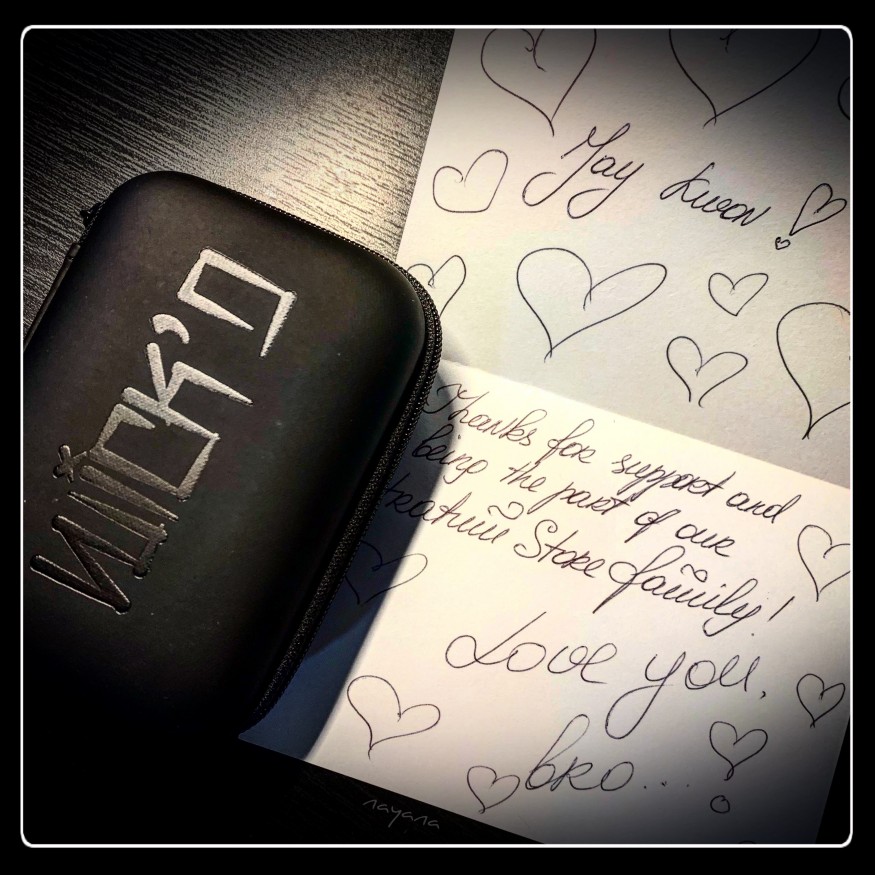 Jay Kwon!
Thanks for support and
being the part of our
Store family!
Love you,
bro...!
nayana